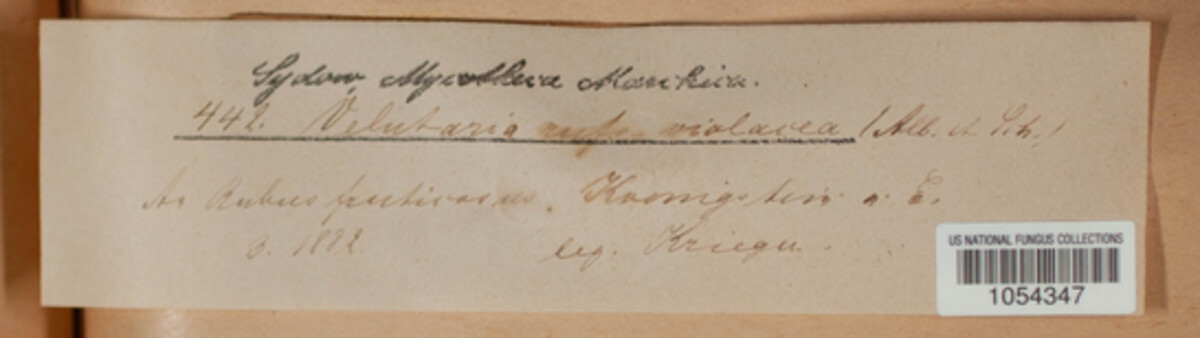 Sydow, Mycotheca Marchica.
442. Velutaria rufo-violacea (Alb. et Sch.)
An Rubus fruticosus. Koenigstein a. E.
3. 1882 leg. Krieger.
US NATIONAL FUNGUS COLLECTIONS
1054347